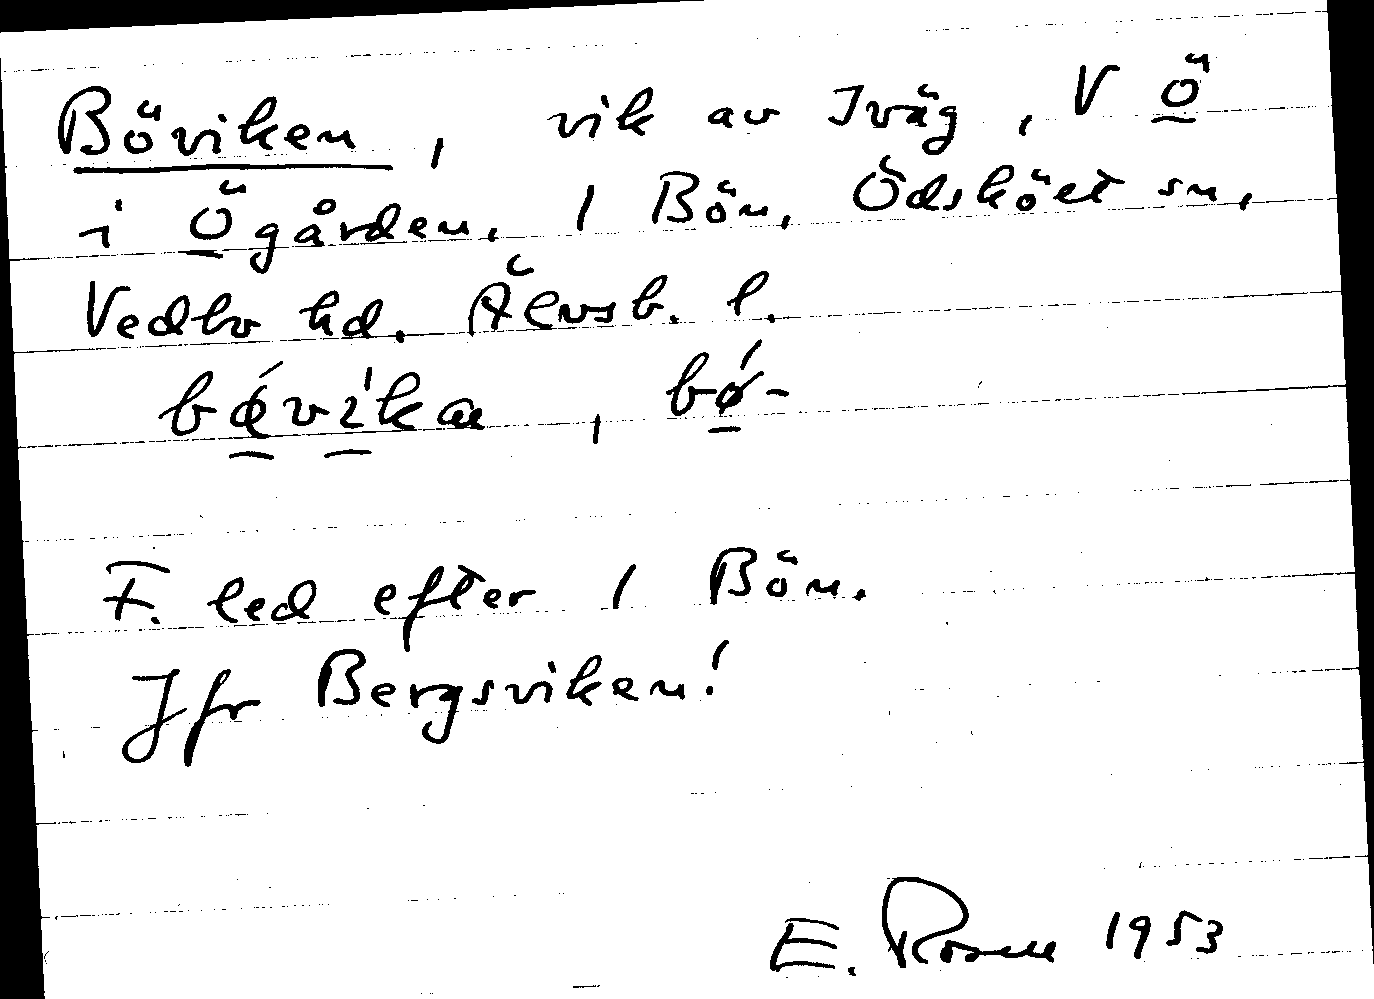 Böviken, vik av Iväg, V Ö
i Ögården, 1 Bön, Ödsköet sn,
Vedbo hd. Älvsb. l.
bǿvika, bǿ-
F. led efter 1 Bön.
Jfr Bergsviken!
E. Rosen 1953